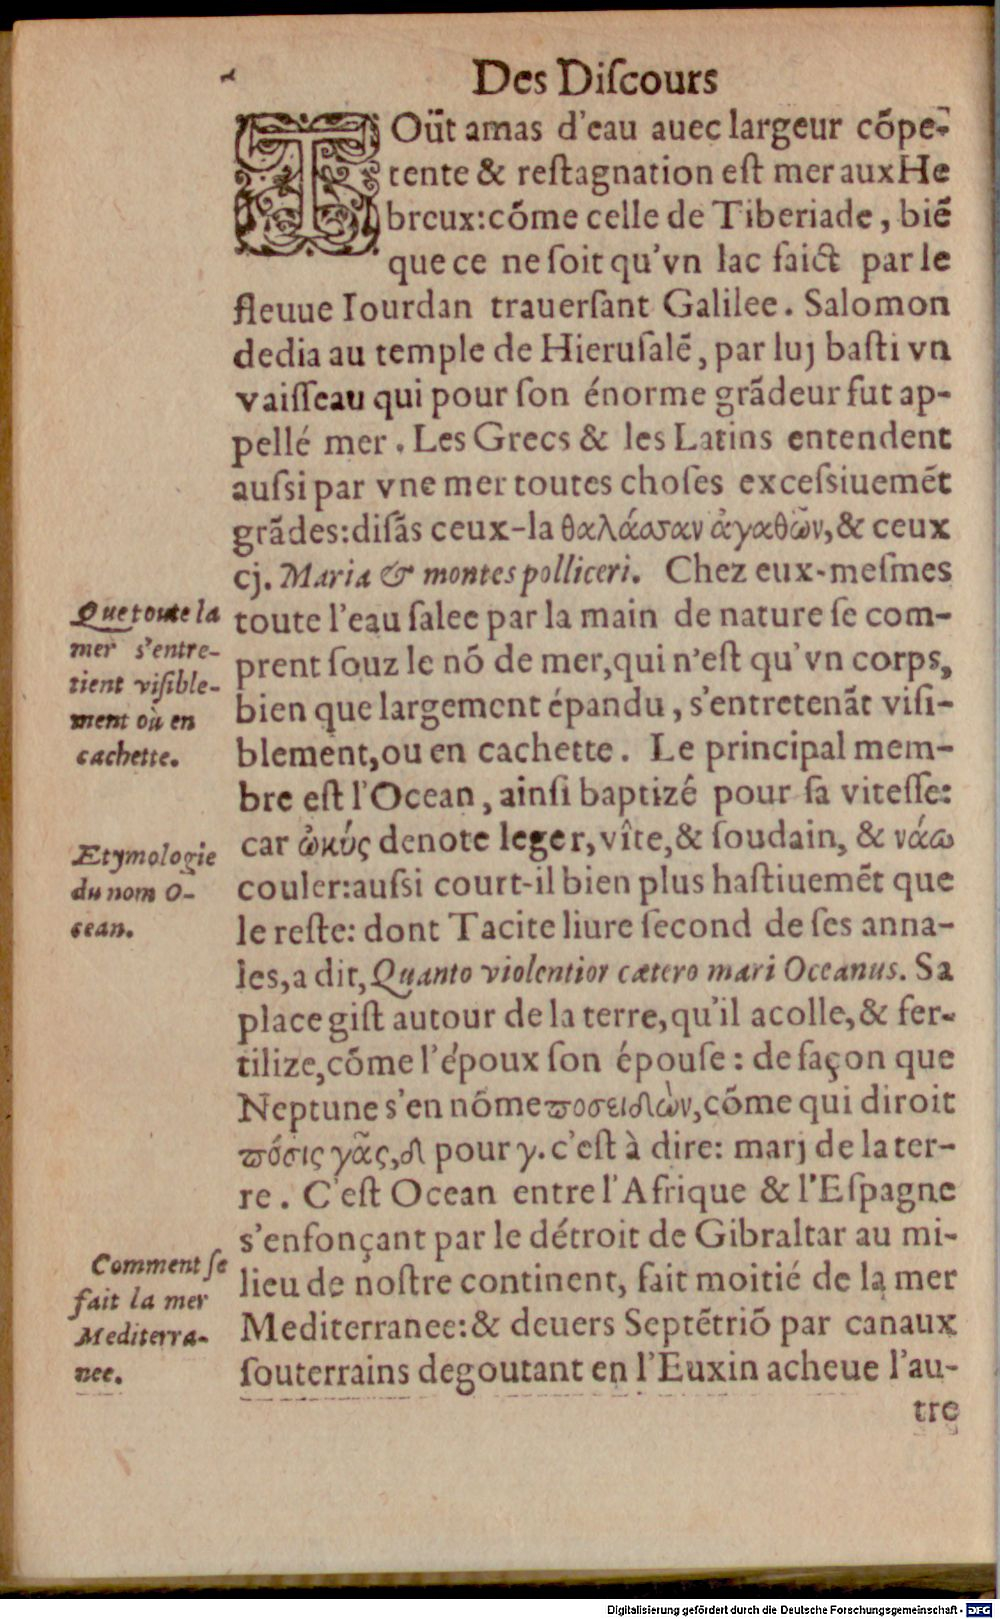 Des Diſcours
TOüt amas d'eau auec largeur cõpe-
tente & reſtagnation eſt mer aux He
breux: cõme celle de Tiberiade, biẽ
que ce ne ſoit qu'vn lac faict par le
fleuue Iourdan trauerſant Galilee. Salomon
dedia au temple de Hieruſalẽ, par luj baſti vn
vaiſſeau qui pour ſon énorme grãdeur fut ap-
pellé mer. Les Grecs & les Latins entendent
auſsi par vne mer toutes choſes exceſsiuemẽt
grãdes: diſãs ceux-la θαλάσσαν ἀγαθῶν, & ceux
cj. Maria & montes polliceri. Chez eux-meſmes
toute l'eau ſalee par la main de nature ſe com-
prent ſouz le nõ de mer, qui n'eſt qu'vn corps,
bien que largement épandu, s'entretenãt viſi-
blement, ou en cachette. Le principal mem-
bre eſt l'Ocean, ainſi baptizé pour ſa viteſſe:
car ὠκύς denote leger, vîte, & ſoudain, & νάω
couler: auſsi court-il bien plus haſtiuemẽt que
le reſte: dont Tacite liure ſecond de ſes anna-
les, a dit, Quanto violentior cætero mari Oceanus. Sa
place giſt autour de la terre, qu'il acolle, & fer-
tilize, cõme l'époux ſon épouſe: de façon que
Neptune s'en nõme ποσειδὼν, cõme qui diroit
πόσις γᾶς, δ pour γ. c'eſt à dire: marj de la ter-
re. C'eſt Ocean entre l'Afrique & l'Eſpagne
s'enfonçant par le détroit de Gibraltar au mi-
lieu de noſtre continent, fait moitié de la mer
Mediterranee: & deuers Septẽtriõ par canaux
ſouterrains degoutant en l'Euxin acheue l'au-
tre
Que toute la
mer s'entre-
tient viſible-
ment où en
cachette.
Etymologie
du nom O-
cean.
Comment ſe
fait la mer
Mediterra-
nee.
Digitalisierung gefördert durch die Deutsche Forschungsgemeinschaft - DFG